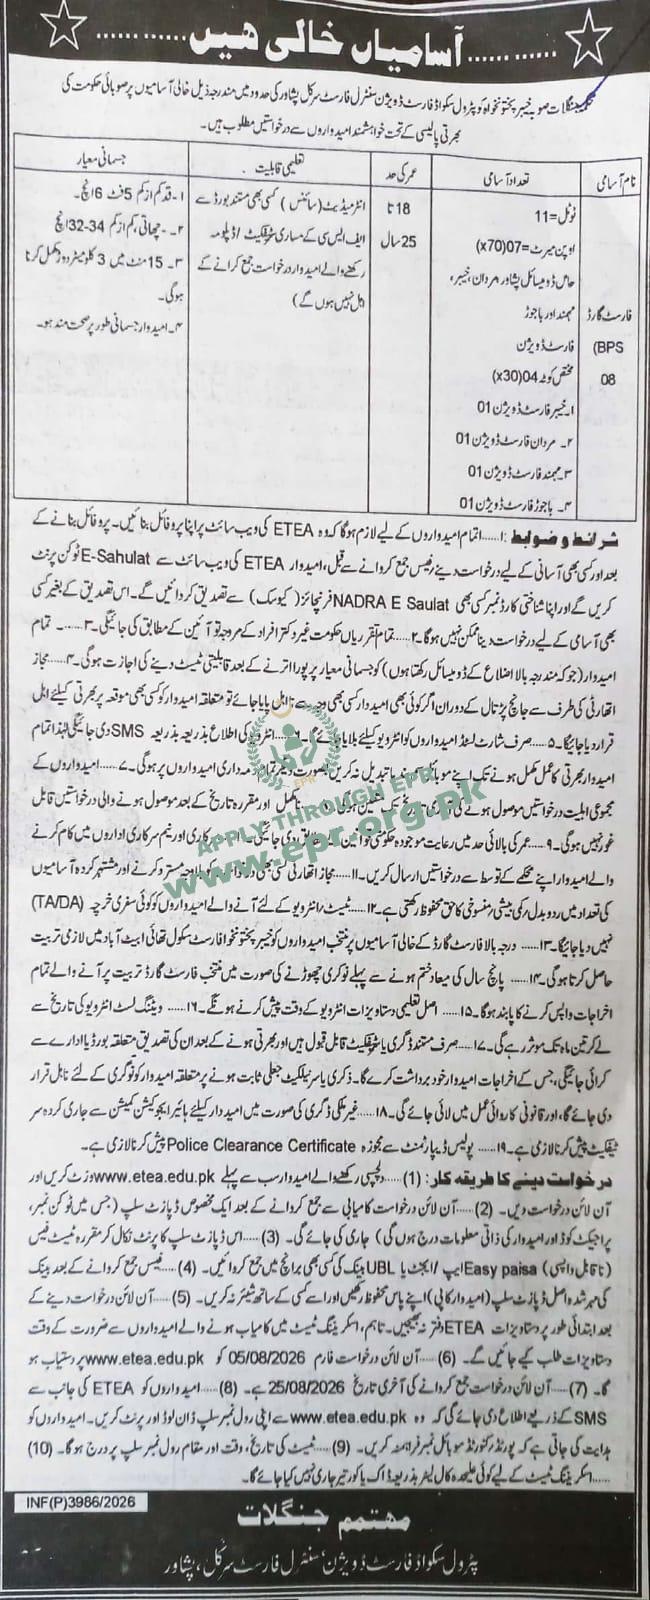 آسامیاں خالی ھیں
محکمہ جنگلات صوبہ خیبر پختونخواہ کو پٹرول سکواڈ فارسٹ ڈویژن سنٹرل فارسٹ سرکل پشاور کی حدود میں مندرجہ ذیل خالی آسامیوں پر صوبائی حکومت کی
بھرتی پالیسی کے تحت خواہشمند امیدواروں سے درخواستیں مطلوب ہیں۔
نام آسامی
تعداد آسامی
عمر کی حد
تعلیمی قابلیت
جسمانی معیار
فارسٹ گارڈ
(BPS
08
ٹوٹل=11
اوپن میرٹ=07(70x)
حامل ڈومیسائل پشاور مردان، خیبر،
مہمند اور باجوڑ
فارسٹ ڈویژن
مختص کوٹہ 04(30x)
۱۔ خیبر فارسٹ ڈویژن 01
۲۔ مردان فارسٹ ڈویژن 01
۳۔ مہمند فارسٹ ڈویژن 01
۴۔ باجوڑ فارسٹ ڈویژن 01
18 تا
25 سال
انٹرمیڈیٹ (سائنس) کسی بھی مستند بورڈ سے
ایف ایس سی کے مساری سرٹیفکیٹ / ڈپلومہ
رکھنے والے امیدوار درخواست جمع کرانے کے
اہل نہیں ہوں گے)
۱۔ قد کم از کم 5 فٹ 6 انچ۔
۲۔ چھاتی کم از کم 34-32 انچ
۳۔ 15 منٹ میں 3 کلومیٹر دوڑ مکمل کرنا
ہوگی۔
۴۔ امیدوار جسمانی طور پر صحت مند ہو۔
شرائط و ضوابط: ۱۔.....تمام امیدواروں کے لیے لازم ہوگا کہ وہ ETEA کی ویب سائٹ پر اپنا پروفائل بنائیں۔ پروفائل بنانے کے
بعد اور کسی بھی آسامی کے لیے درخواست دینے / فیس جمع کروانے سے قبل، امیدوار ETEA کی ویب سائٹ سے E-Sahulat ٹوکن پرنٹ
کریں گے اور اپنا شناختی کارڈ نمبر کسی بھی NADRA E Saulat فرنچائز (کیوسک) سے تصدیق کروائیں گے۔ اس تصدیق کے بغیر کسی
بھی آسامی کے لیے درخواست دینا ممکن نہیں ہوگا۔ ۲..... تمام تقرریاں حکومت خیبر پختونخوا کے مروجہ قوانین کے مطابق کی جائیگی۔ ۳..... تمام
امیدوار (جو کہ مندرجہ بالا اضلاع کے ڈومیسائل رکھتا ہوں) کو جسمانی معیار پر پورا اترنے کے بعد قابلیتی ٹیسٹ دینے کی اجازت ہوگی۔ ۴..... مجاز
اتھارٹی کی طرف سے جانچ پڑتال کے دوران اگر کوئی بھی امیدوار کسی بھی وجہ سے نااہل پایا جائے تو متعلقہ امیدوار کو کسی بھی موقعہ پر بھرتی کیلئے نااہل
قرار دیا جائیگا۔ ۵..... صرف شارٹ لسٹڈ امیدواروں کو انٹرویو کیلئے بلایا جائے گا۔ ۶..... انٹرویو کی اطلاع بذریعہ SMS دی جائیگی لہذا تمام
امیدوار بھرتی کا عمل مکمل ہونے تک اپنے موبائل نمبر تبدیل نہ کریں بصورت دیگر تمام ذمہ داری امیدوار پر ہوگی۔ ۷..... امیدواروں کے
مجموعی اہلیت درخواستیں موصول ہونے کی آخری تاریخ تک متعین ہوگی۔ ۸..... نامکمل اور مقررہ تاریخ کے بعد موصول ہونے والی درخواستیں قابل
غور نہیں ہوگی۔ ۹..... عمر کی بالائی حد میں رعایت موجودہ حکومتی قوانین کے مطابق دی جائیگی۔ ۱۰..... سرکاری اور نیم سرکاری اداروں میں کام کرنے
والے امیدوار اپنے محکمے کے توسط سے درخواستیں ارسال کریں۔ ۱۱..... مجاز اتھارٹی کسی بھی درخواست کو بلاوجہ مسترد کرنے اور مشتہر کردہ آسامیوں
کی تعداد میں ردوبدل / کمی بیشی / منسوخی کا حق محفوظ رکھتی ہے۔ ۱۲..... ٹیسٹ / انٹرویو کے لئے آنے والے امیدواروں کو کوئی سفری خرچہ (TA/DA)
نہیں دیا جائیگا۔ ۱۳..... درجہ بالا فارسٹ گارڈ کے خالی آسامیوں پر منتخب امیدواروں کو خیبر پختونخوا فارسٹ سکول تھائی ایبٹ آباد میں لازمی تربیت
حاصل کرنا ہوگی۔ ۱۴..... پانچ سال کی میعاد ختم ہونے سے پہلے نوکری چھوڑنے کی صورت میں منتخب فارسٹ گارڈ تربیت پر آنے والے تمام
اخراجات واپس کرنے کا پابند ہوگا۔ ۱۵..... اصل تعلیمی دستاویزات انٹرویو کے وقت پیش کرنے ہونگے۔ ۱۶..... ویٹنگ لسٹ انٹرویو کی تاریخ سے
لے کر تین ماہ تک موثر رہے گی۔ ۱۷..... صرف مستند ڈگری یا سرٹیفکیٹ قابل قبول ہیں اور بھرتی ہونے کے بعد ان کی تصدیق متعلقہ بورڈ یا ادارے سے
کرائی جائیگی، جس کے اخراجات امیدوار خود برداشت کرے گا۔ ڈگری یا سرٹیفکیٹ جعلی ثابت ہونے پر متعلقہ امیدوار کو نوکری کے لئے نااہل قرار
دی جائے گا، اور قانونی کاروائی عمل میں لائی جائے گی۔ ۱۸..... غیر ملکی ڈگری کی صورت میں امیدوار کیلئے ہائیر ایجوکیشن کمیشن سے جاری کردہ سر
ٹیفکیٹ پیش کرنا لازمی ہے۔ ۱۹..... پولیس ڈیپارٹمنٹ سے مجوزہ Police Clearance Certificate پیش کرنا لازمی ہے۔
درخواست دینے کا طریقہ کار: (1).....دلچسپی رکھنے والے امیدوار سب سے پہلے www.etea.edu.pk وزٹ کریں اور
آن لائن درخواست دیں۔ (2)..... آن لائن درخواست کامیابی سے جمع کروانے کے بعد ایک مخصوص ڈپازٹ سلپ (جس میں ٹوکن نمبر،
پراجیکٹ کوڈ اور امیدوار کی ذاتی معلومات درج ہوں گی) جاری کی جائے گی۔ (3)..... اس ڈپازٹ سلپ کا پرنٹ نکال کر مقررہ ٹیسٹ فیس
(ناقابل واپسی) Easy paisa ایپ / ایجنٹ یا UBL بینک کی کسی بھی برانچ میں جمع کروائیں۔ (4)..... فیس جمع کروانے کے بعد بینک
کی مہر شدہ اصل ڈپازٹ سلپ (امیدوار کاپی) اپنے پاس محفوظ رکھیں اور اسے کسی کے ساتھ شیئر نہ کریں۔ (5)..... آن لائن درخواست دینے کے
بعد ابتدائی طور پر دستاویزات ETEA دفتر نہ بھیجیں۔ تاہم، اسکریننگ ٹیسٹ میں کامیاب ہونے والے امیدواروں سے ضرورت کے وقت
دستاویزات طلب کیے جائیں گے۔ (6)..... آن لائن درخواست فارم 05/08/2026 کو www.etea.edu.pk پر دستیاب ہو
گا۔ (7)..... آن لائن درخواست جمع کروانے کی آخری تاریخ 25/08/2026 ہے۔ (8)..... امیدواروں کو ETEA کی جانب سے
SMS کے ذریعے اطلاع دی جائے گی کہ وہ www.etea.edu.pk سے اپنی رول نمبر سلپ ڈاؤن لوڈ اور پرنٹ کریں۔ امیدواروں کو
ہدایت کی جاتی ہے کہ پورٹڈ / کنورٹڈ موبائل نمبر فراہم نہ کریں۔ (9)..... ٹیسٹ کی تاریخ، وقت اور مقام رول نمبر سلپ پر درج ہوگا۔ (10)
.....اسکریننگ ٹیسٹ کے لیے کوئی علیحدہ کال لیٹر بذریعہ ڈاک یا کوریئر جاری نہیں کیا جائے گا۔
INF(P)3986/2026
مہتمم جنگلات
پٹرول سکواڈ فارسٹ ڈویژن، سنٹرل فارسٹ سرکل، پشاور
EPR
APPLY THROUGH EPR
www.epr.org.pk